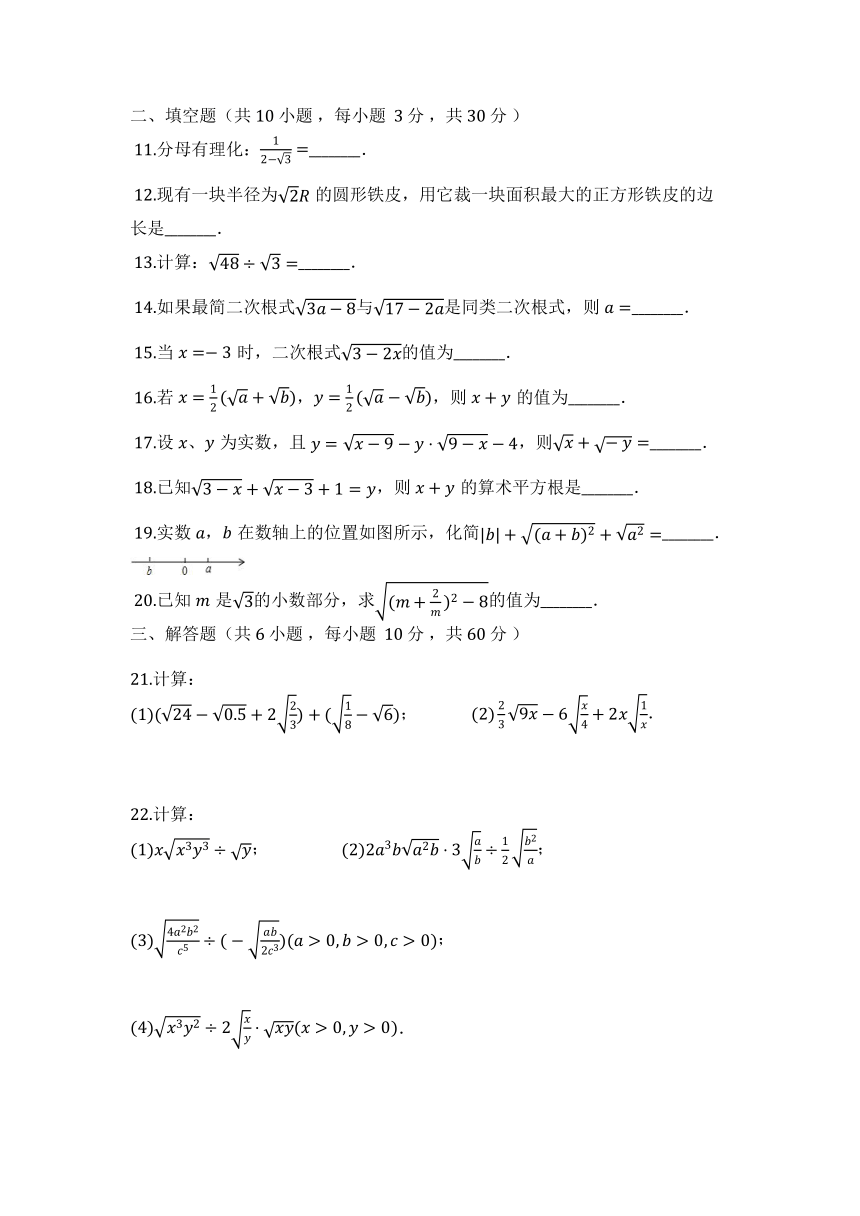 二、填空题（共 10 小题 ，每小题 3 分 ，共 30 分 ）
11.分母有理化：$\frac{1}{2-\sqrt{3}}$ =_______．
12.现有一块半径为$\sqrt{2}R$ 的圆形铁皮，用它裁一块面积最大的正方形铁皮的边
长是_______．
13.计算：$\sqrt{48} \div \sqrt{3}$ =_______．
14.如果最简二次根式$\sqrt{3a-8}$与$\sqrt{17-2a}$是同类二次根式，则 $a$ =_______．
15.当 $x=-3$ 时，二次根式$\sqrt{3-2x}$的值为_______．
16.若 $x=\frac{1}{2}(\sqrt{a}+\sqrt{b})$，$y=\frac{1}{2}(\sqrt{a}-\sqrt{b})$，则 $x+y$ 的值为_______．
17.设 $x$、$y$ 为实数，且 $y=\sqrt{x-9}-y\cdot\sqrt{9-x}-4$，则$\sqrt{x}+\sqrt{-y}$ =_______．
18.已知$\sqrt{3-x}+\sqrt{x-3}+1=y$，则 $x+y$ 的算术平方根是_______．
19.实数 $a$，$b$ 在数轴上的位置如图所示，化简$|b|+\sqrt{(a+b)^2}+\sqrt{a^2}$ =_______．
b 0 a
20.已知 $m$ 是$\sqrt{3}$的小数部分，求$\sqrt{(m+\frac{2}{m})^2-8}$的值为_______．
三、解答题（共 6 小题 ，每小题 10 分 ，共 60 分 ）
21.计算：
(1)$(\sqrt{24}-\sqrt{0.5}+2\sqrt{\frac{2}{3}})+(\sqrt{\frac{1}{8}}-\sqrt{6})$； (2)$\frac{2}{3}\sqrt{9x}-6\sqrt{\frac{x}{4}}+2x\sqrt{\frac{1}{x}}$.
22.计算：
(1)$x\sqrt{x^3y^3}\div\sqrt{y}$； (2)$2a^3b\sqrt{a^2b}\cdot3\sqrt{\frac{a}{b}}\div\frac{1}{2}\sqrt{\frac{b^2}{a}}$；
(3)$\sqrt{\frac{4a^2b^2}{c^5}}\div(-\sqrt{\frac{ab}{2c^3}})(a>0,b>0,c>0)$；
(4)$\sqrt{x^3y^2}\div2\sqrt{\frac{x}{y}}\cdot\sqrt{xy}(x>0,y>0)$．